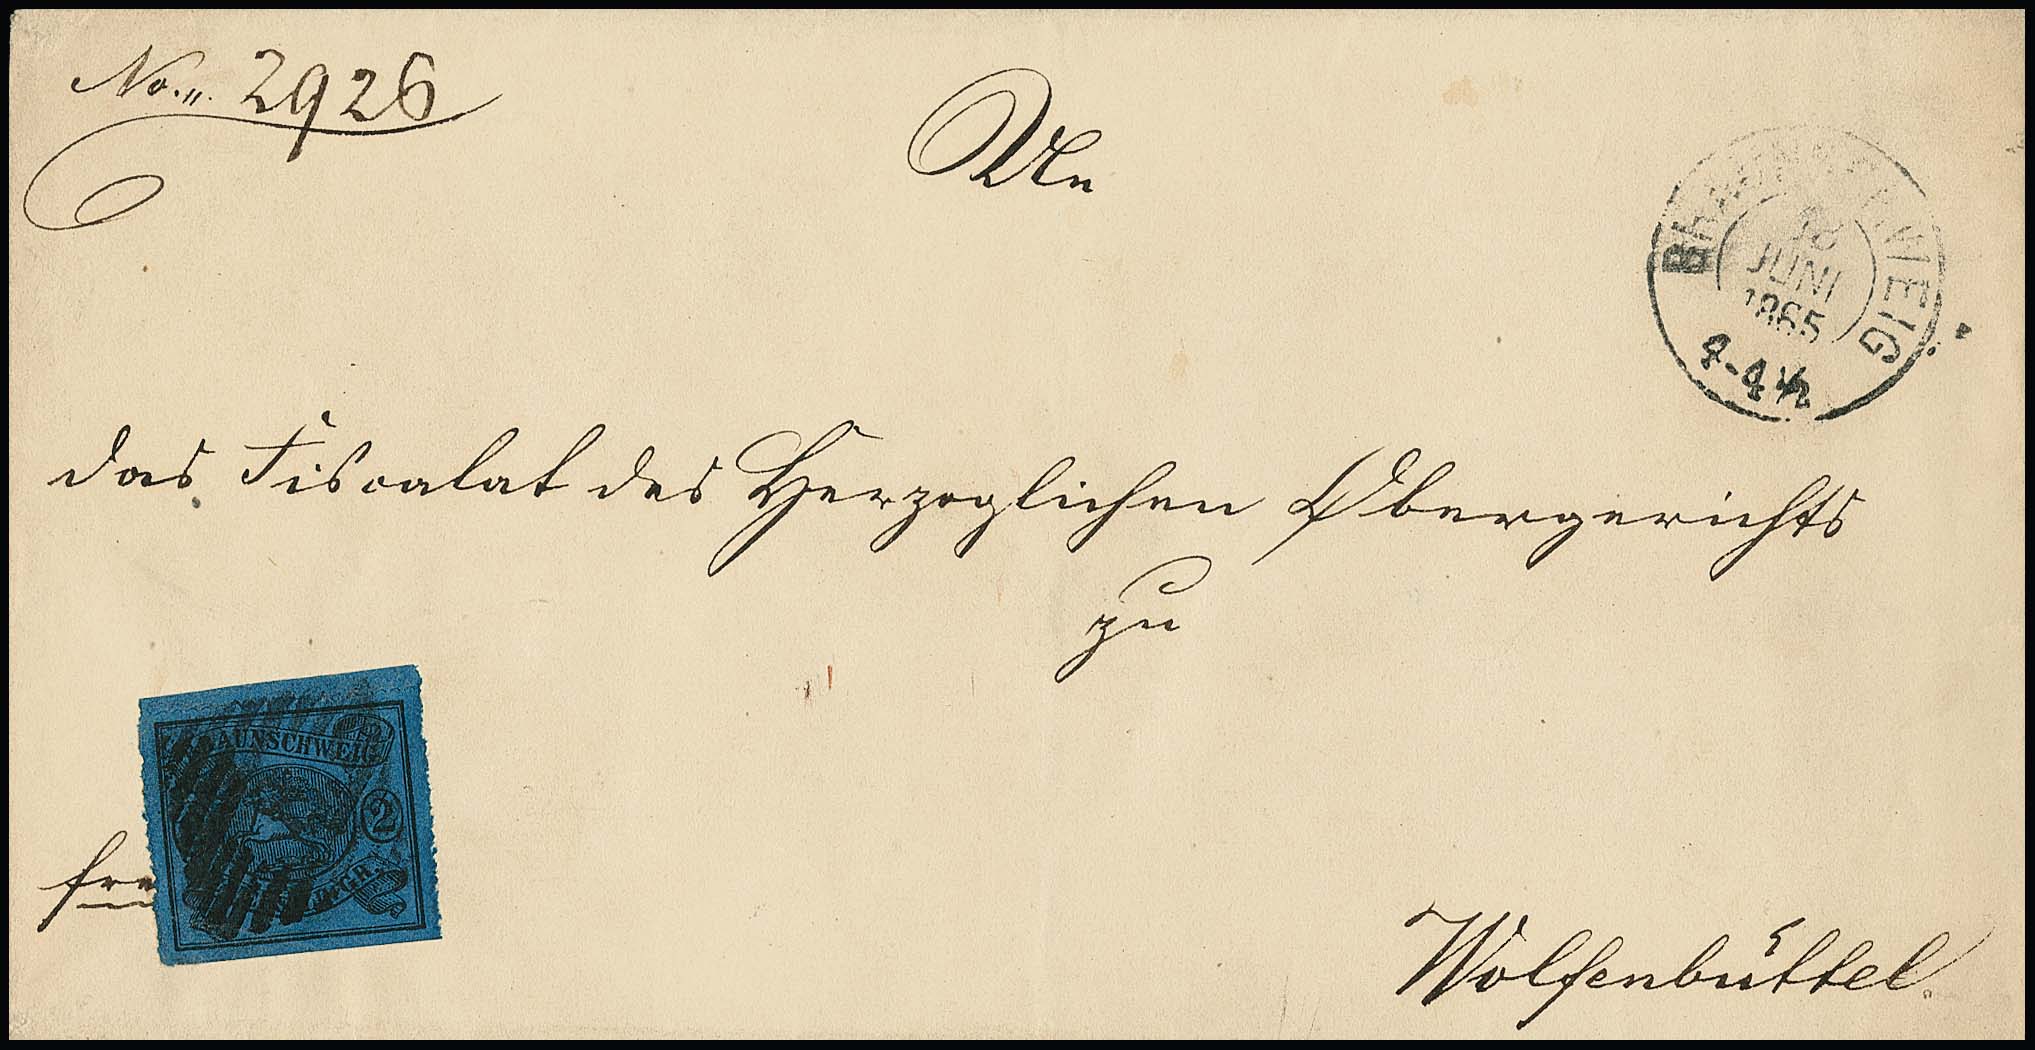 No. 2926
An
BRAUNSCHWEIG
JUNI
1865
4-4½
das Fiscalat des Herzoglichen Obergerichts
zu
BRAUNSCHWEIG
2
GR.
fr
Wolfenbüttel.